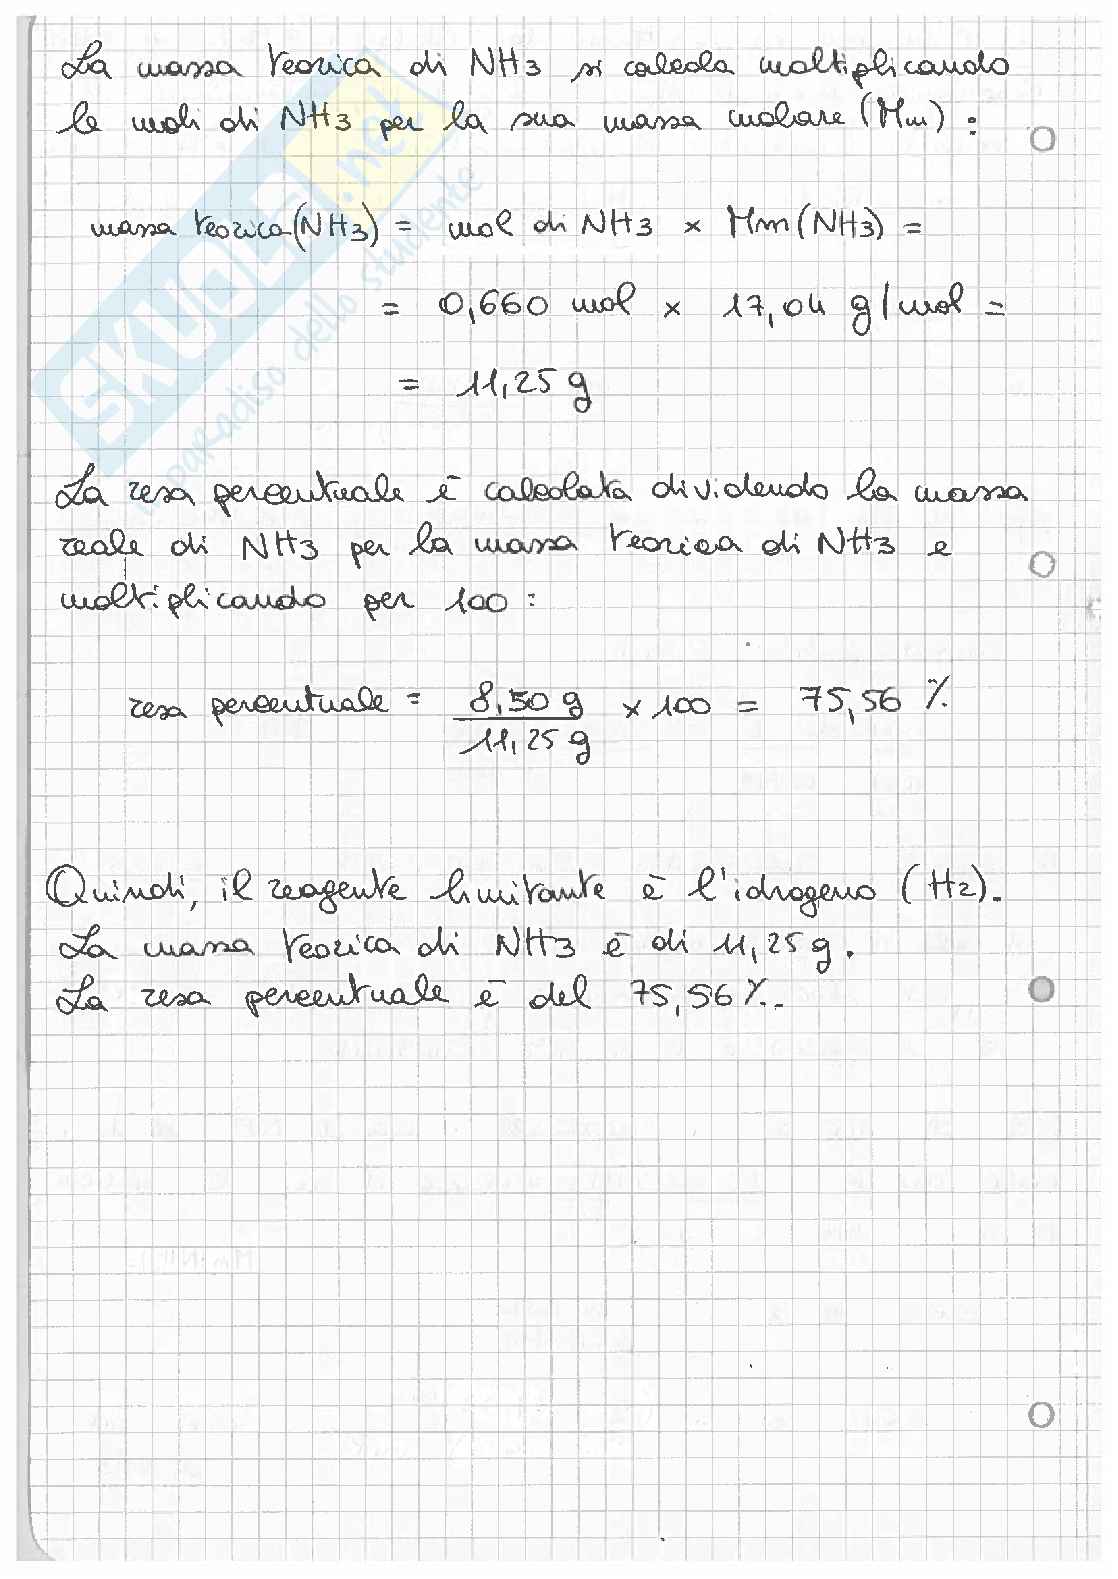 La massa teorica di NH3 si calcola moltiplicando
le moli di NH3 per la sua massa molare (Mm) :
massa teorica (NH3) = mol di NH3 x Mm (NH3) =
= 0,660 mol x 17,04 g/mol =
= 11,25 g
La resa percentuale è calcolata dividendo la massa
reale di NH3 per la massa teorica di NH3 e
moltiplicando per 100 :
resa percentuale = 8,50 g / 11,25 g x 100 = 75,56 %
Quindi, il reagente limitante è l'idrogeno (H2).
La massa teorica di NH3 è di 11,25 g.
La resa percentuale è del 75,56 %.
SKUOLA.net
il paradiso dello studente